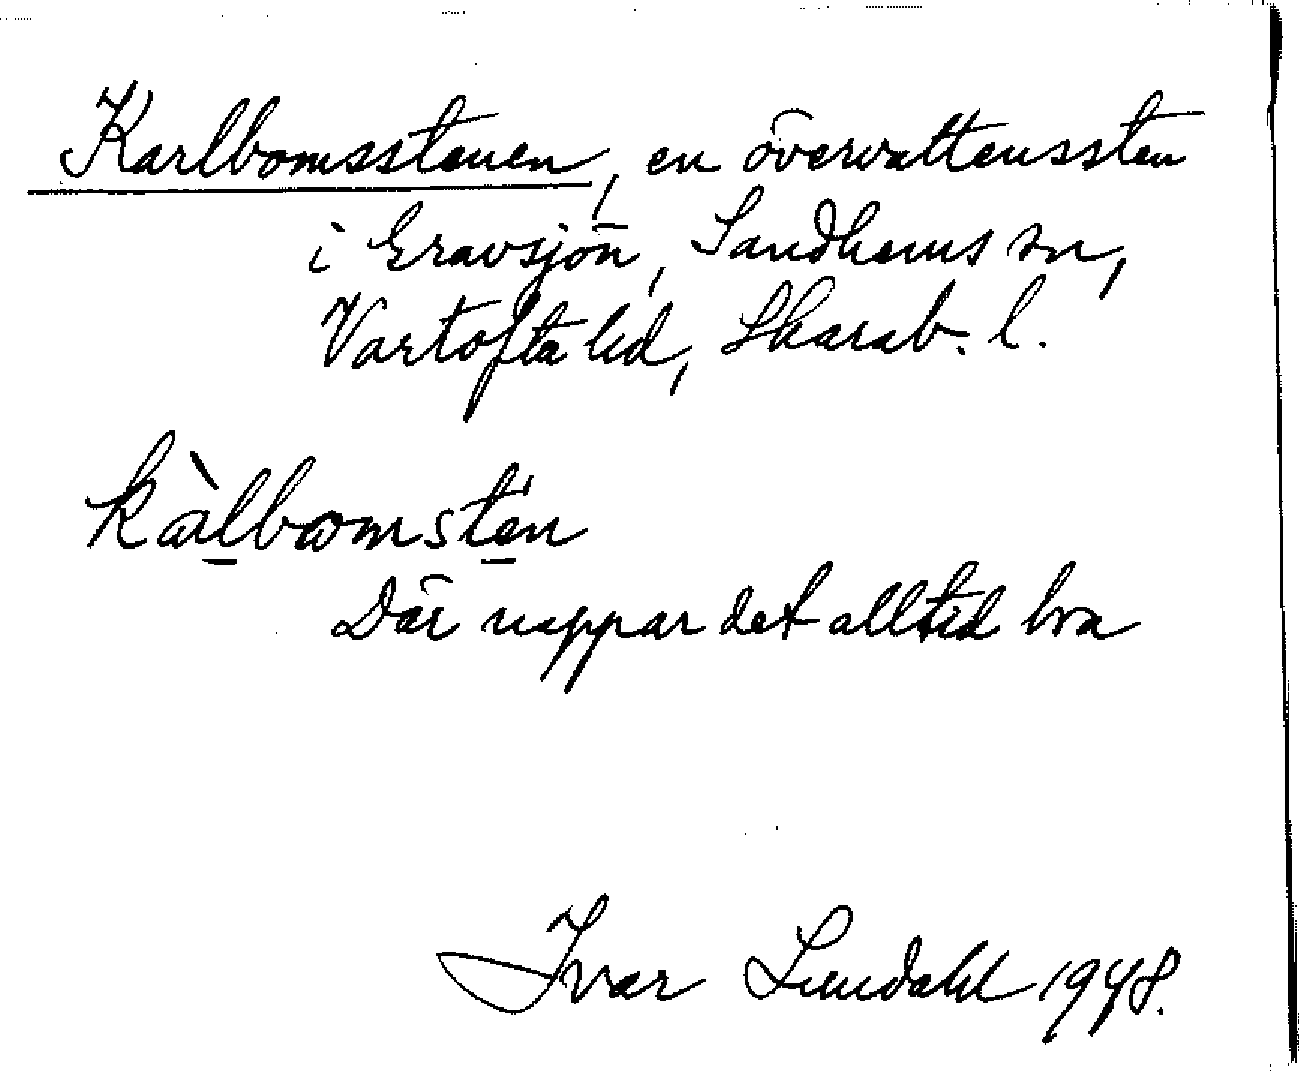 Karlbomsstenen, en övervattenssten
i Eravsjön, Sandhems sn,
Vartofta hd, Skarab. l.
kàlbomstén
Där nappar det alltid bra
Ivar Lundahl 1948.